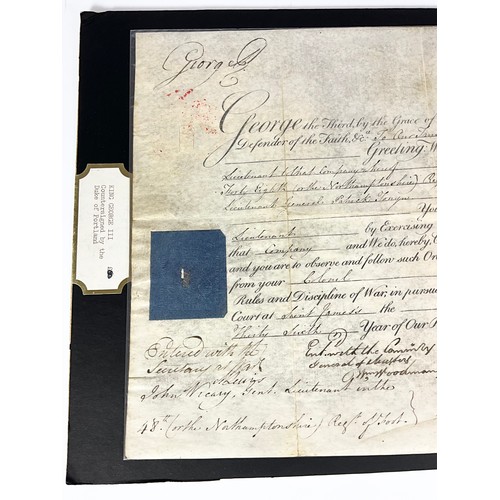 George R
George the Third, by the Grace of
Defender of the Faith, &c. To Our
Greeting: W
Lieutenant to that Company whereof
Forty Eighth (or the Northamptonshire) Re
Lieutenant General
You
Lieutenant by Exercising
that Company and We do, hereby, C
and you are to observe and follow such Or
from your Colonel
Rules and Discipline of War, in pursu
Court at Saint James's the
Thirty Sixth Year of Our R
Entered with the
Secretary at War
Ent. with the Comm'ry
General of Musters
Wm Woodman
John Vicary, Gent. Lieutenant in the
48th (or the Northamptonshire) Regt. of Foot.
KING GEORGE III
Countersigned by the
Duke of Portland